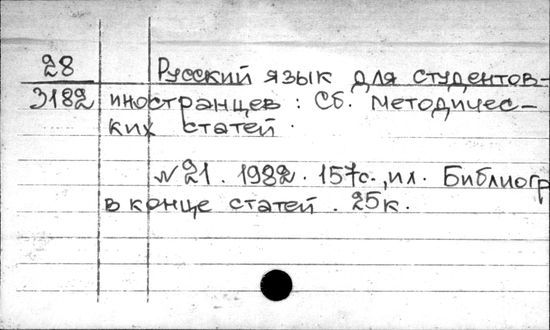 28
3182
Русский язык для студентов-
иностранцев : Сб. методичес-
ких статей.
№21. 1982. 157с., ил. Библиогр
в конце статей. 25к.